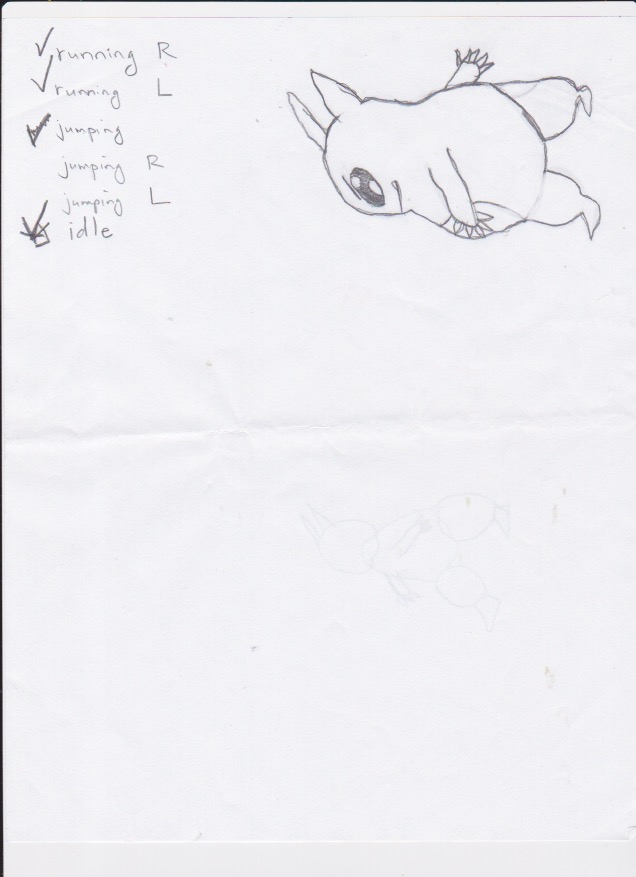 running R
running L
jumping
jumping R
jumping L
idle